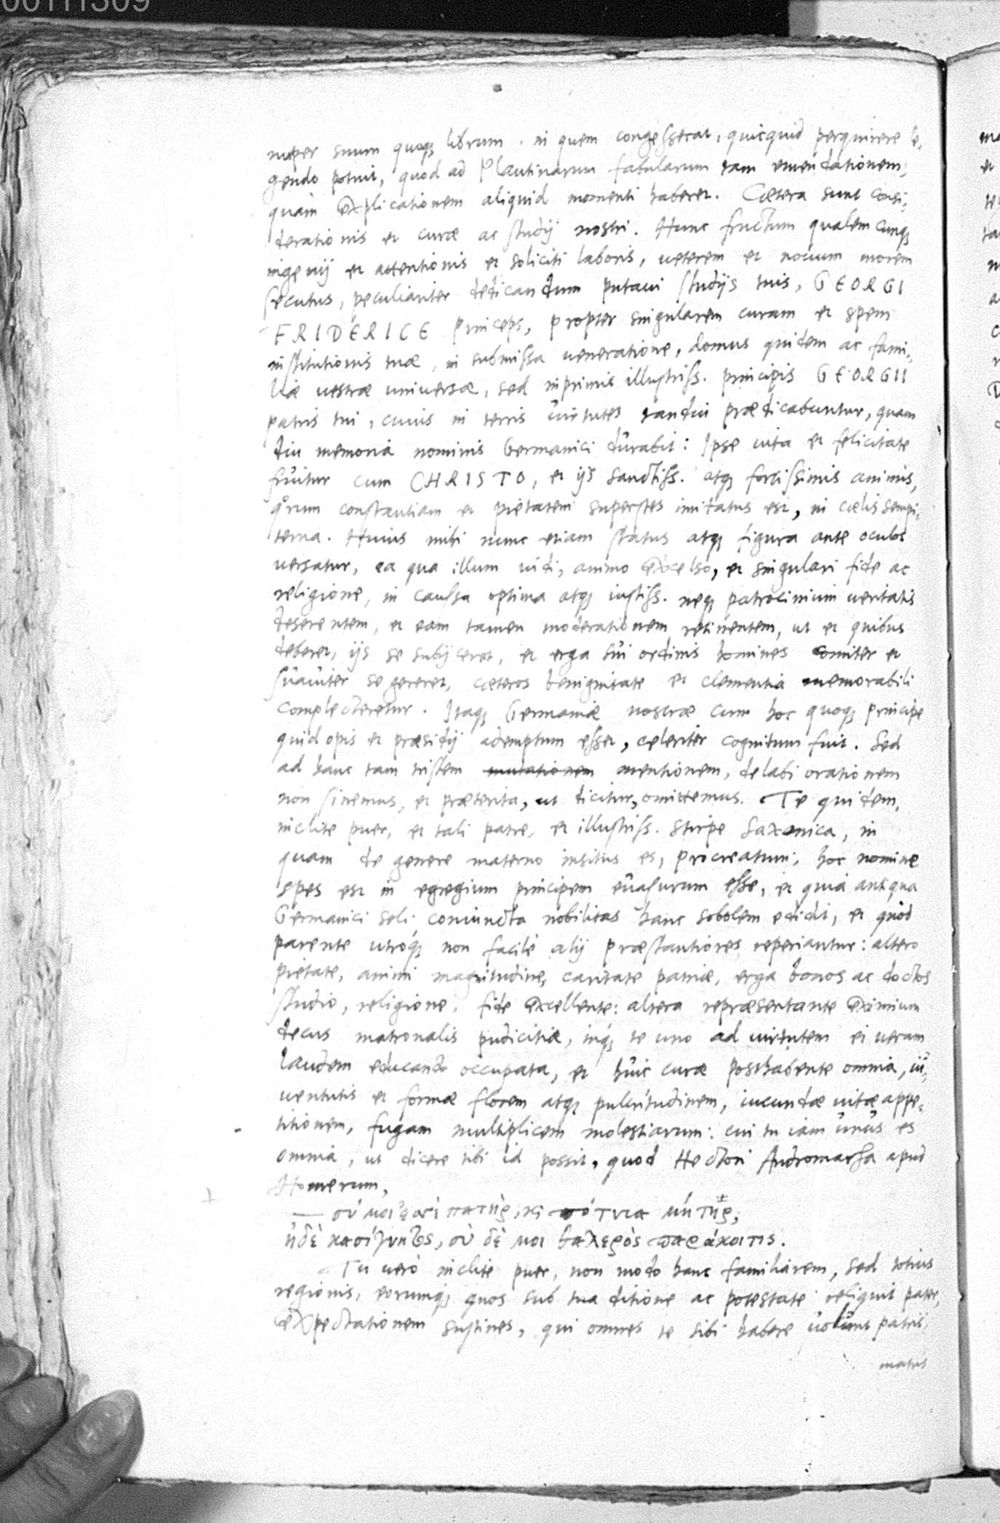 00111309
nuper suum quoque librum. in quem congesserat, quicquid perquirere le,
gendo potuit, quod ad Plautinarum fabularum tam emendationem,
quam explicationem aliquid momenti haberet. Cætera sunt consi,
derationis et curæ ac studij nostri. Hunc fructum qualemcunque
ingenij et attentionis et soliciti laboris, veterem et novum morem
secutus, peculiariter dedicandum putavi studijs tuis, GEORGI
FRIDERICE Princeps, propter singularem curam et spem
institutionis tuæ, in submissa veneratione, domus quidem ac fami,
liæ vestræ universæ, sed inprimis illustriss. principis GEORGII
patris tui, cuius in terris virtutes tandiu prædicabuntur, quam
diu memoria nominis Germanici durabit: Ipse vita et felicitate
fruitur cum CHRISTO, et ijs sanctiss. atque fortissimis animis,
quorum constantiam et pietatem superstes imitatus est, in cælis sempi,
terna. Huius mihi nunc etiam status atque figura ante oculos
versatur, ea qua illum vidi, animo excelso, et singulari fide ac
religione, in caussa optima atque iustiss. neque patrocinium veritatis
deserentem, et eam tamen moderationem retinentem, ut et quibus
deberet, ijs se subijceret, et erga sui ordinis homines comiter et
suaviter se gereret, cæteros benignitate et clementia memorabili
complecteretur. Itaque Germaniæ nostræ cum hoc quoque principe
quid opis et præsidij ademptum esset, celeriter cognitum fuit. Sed
ad hanc tam tristem mutationem mentionem, delabi orationem
non sinemus, et præterita, ut dicitur, omittemus. Te quidem,
inclite puer, et tali patre, et illustriss. stirpe Saxonica, in
quam de genere materno insitus es, procreatum, hoc nomine
spes est in egregium principem evasurum esse, et quia antiqua
Germanici soli coniuncta nobilitas hanc sobolem edidit, et quod
parente utroque non facile alij præstantiores reperiantur: altero
pietate, animi magnitudine, caritate patriæ, erga bonos ac doctos
studio, religione, fide excellente: altera repræsentante eximium
decus matronalis pudicitiæ, inque te uno ad virtutem et veram
laudem educando occupata, et huic curæ posthabente omnia, iu,
ventutis et formæ florem atque pulcritudinem, iucundæ vitæ appe,
titionem, fugam multiplicem molestiarum: cui tu iam unus es
omnia, ut dicere tibi id possit, quod Hectori Andromacha apud
Homerum,
— σύ μοι ἐσσὶ πατὴρ, καὶ πότνια μήτηρ,
ἠδὲ κασίγνητος, σὺ δέ μοι θαλερὸς παρακοίτις.
Tu vero inclite puer, non modo hanc familiarem, sed totius
regionis, eorumque quos sub tua ditione ac potestate reliquit pater,
expectationem sustines, qui omnes te sibi habere volunt patris,
matris